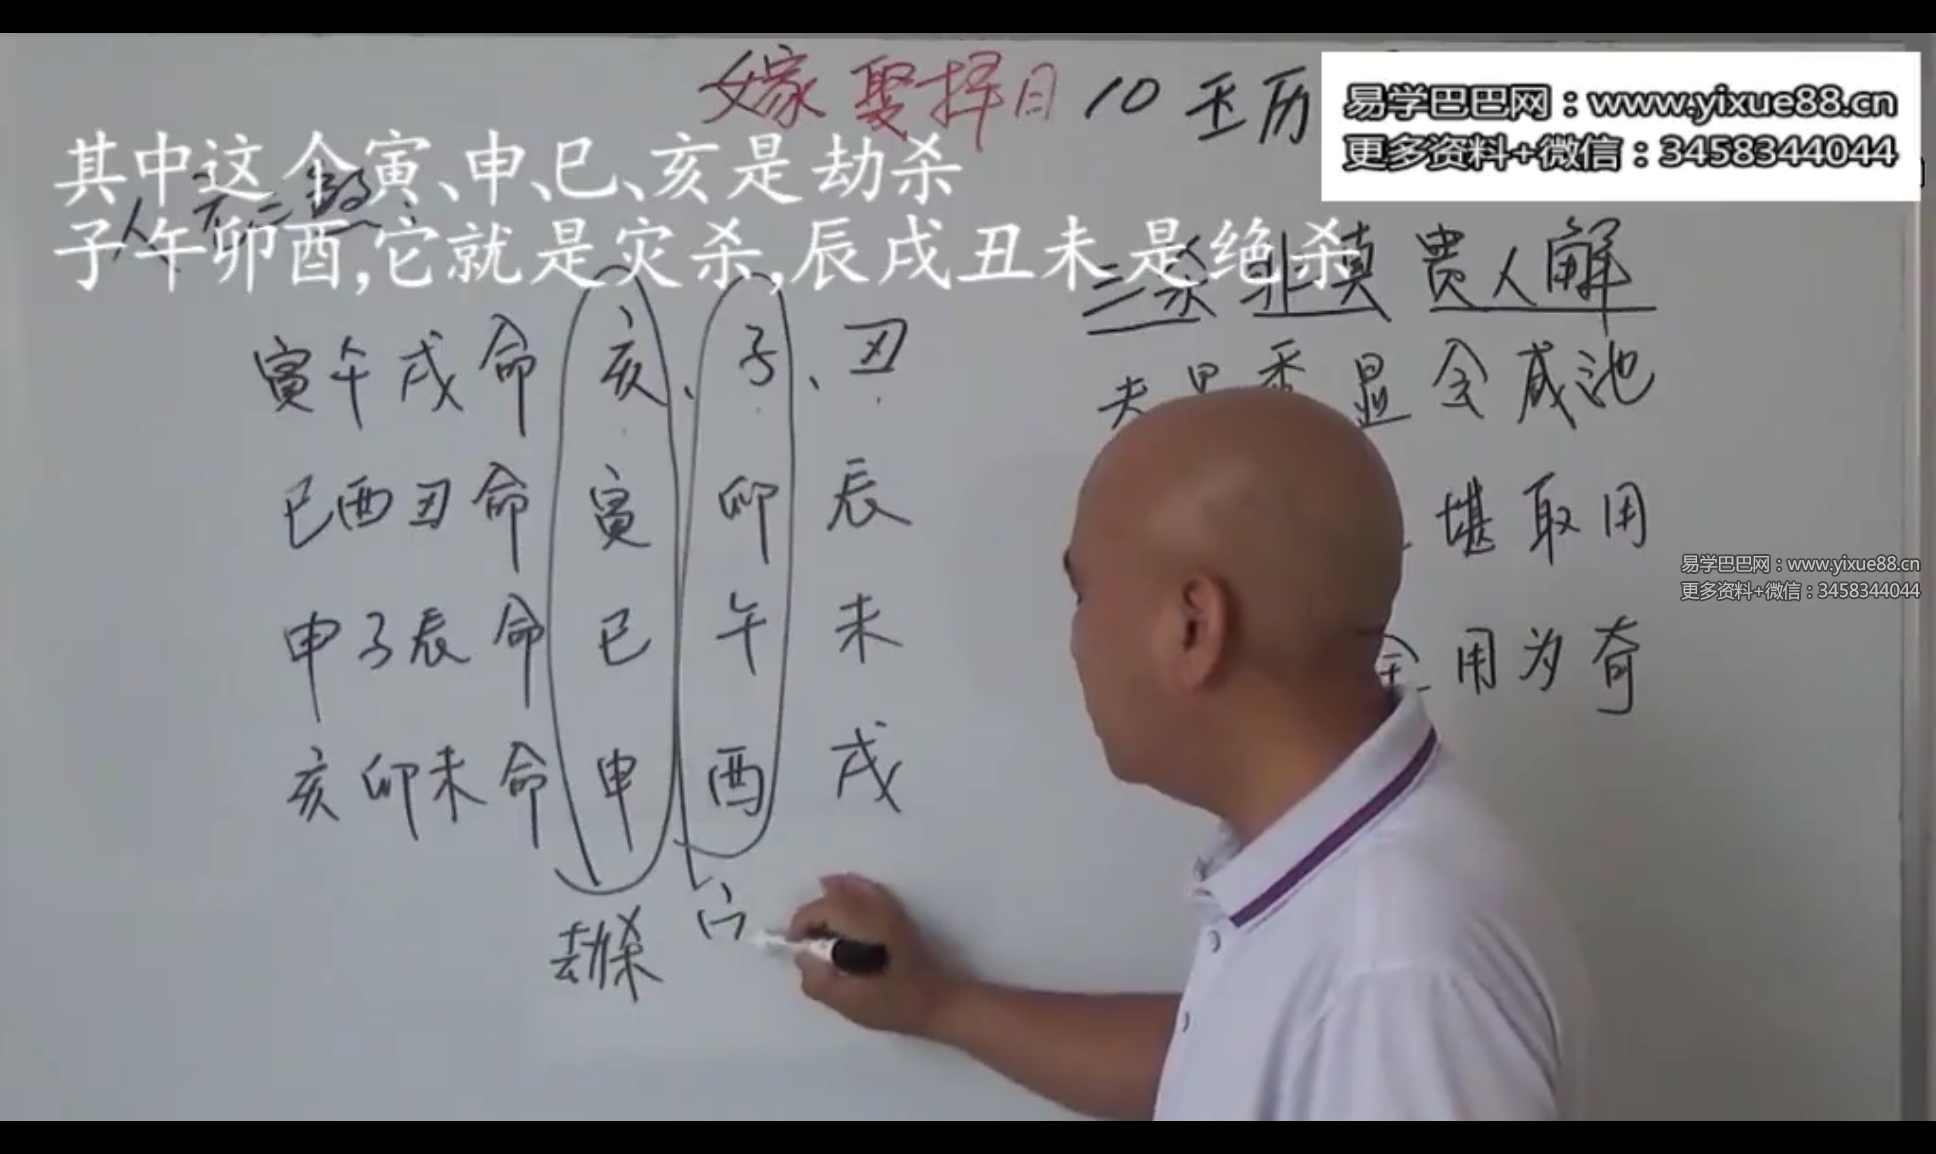 嫁娶择日10 玉历
易学巴巴网：www.yixue88.cn
更多资料+微信：3458344044
其中这个寅、申、巳、亥是劫杀
子午卯酉,它就是灾杀,辰戌丑未是绝杀
三杀非真贵人解
夫星 显 咸池
寅午戌命 亥、子、丑
巳酉丑命 寅 卯 辰
堪取用
易学巴巴网：www.yixue88.cn
更多资料+微信：3458344044
申子辰命 巳 午 未
用为奇
亥卯未命 申 酉 戌
劫杀